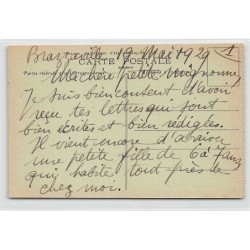 Brazzaville 19 Mai 1929 1
CARTE POSTALE
Ma chère petite mignonne,
Je suis bien content d'avoir
reçu tes lettres qui sont
bien écrites et bien rédigées.
Il vient encore d'arriver
une petite fille de 6 à 7 ans
qui habite tout près de
chez moi.